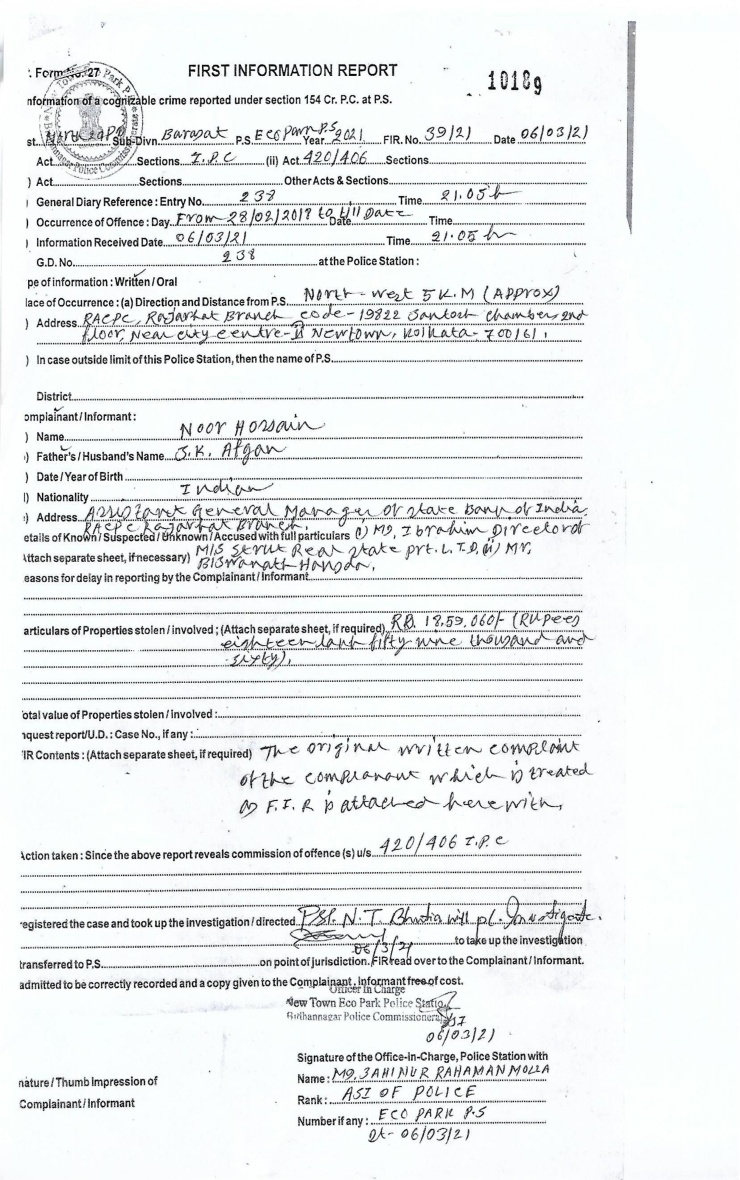 . Form No. 27
FIRST INFORMATION REPORT
10189
nformation of a cognizable crime reported under section 154 Cr. P.C. at P.S.
st. Sub-Divn. Barasat P.S. Eco Park P.S Year 2021 FIR. No. 39/21 Date 06/03/21
Act Sections I.P.C (ii) Act 420/406 Sections
) Act Sections Other Acts & Sections
) General Diary Reference : Entry No. 238 Time 21.05 h
) Occurrence of Offence : Day From 28/02/2018 to till Date Date Time
) Information Received Date 06/03/21 Time 21.05 hr
G.D. No. 238 at the Police Station :
pe of information : Written / Oral
lace of Occurrence : (a) Direction and Distance from P.S. North - West 5 K.M (Approx)
) Address RACPC, Rajarhat Branch code - 19822 Santosh chambers 2nd
floor, Near city centre - II Newtown, Kolkata - 700161.
) In case outside limit of this Police Station, then the name of P.S.
District
omplainant / Informant :
) Name Noor Hossain
) Father's / Husband's Name S.K. Afgan
) Date / Year of Birth
) Nationality Indian
) Address Assistant General Manager of State Bank of India,
RACPC Rajarhat Branch.
etails of Known / Suspected / Unknown / Accused with full particulars (i) MD, Ibrahim Director of
Attach separate sheet, if necessary) M/S Strut Real state pvt. L.T.D, (ii) Mr,
Biswanath Hansda.
easons for delay in reporting by the Complainant / Informant
articulars of Properties stolen / involved ; (Attach separate sheet, if required) RB. 18,59,060/- (Rupees
eighteen lakh fifty nine thousand and
sixty).
otal value of Properties stolen / involved :
nquest report / U.D. : Case No., if any :
IR Contents : (Attach separate sheet, if required) The original written complaint
of the complianant which is treated
as F.I.R is attached herewith.
Action taken : Since the above report reveals commission of offence (s) u/s. 420/406 I.P.C
egistered the case and took up the investigation / directed PSI. N.T. Bhutia will pl. Investigate.
to take up the investigation
06/3/21
transferred to P.S. on point of jurisdiction. FIR read over to the Complainant / Informant.
admitted to be correctly recorded and a copy given to the Complainant, Informant free of cost.
Officer In Charge
New Town Eco Park Police Statio
Bidhannagar Police Commissionera
06/03/21
Signature of the Office-In-Charge, Police Station with
nature / Thumb Impression of
Name : MD, JAHINUR RAHAMAN MOLLA
Complainant / Informant
Rank : ASI OF POLICE
Number if any : ECO PARK P.S
Dt- 06/03/21